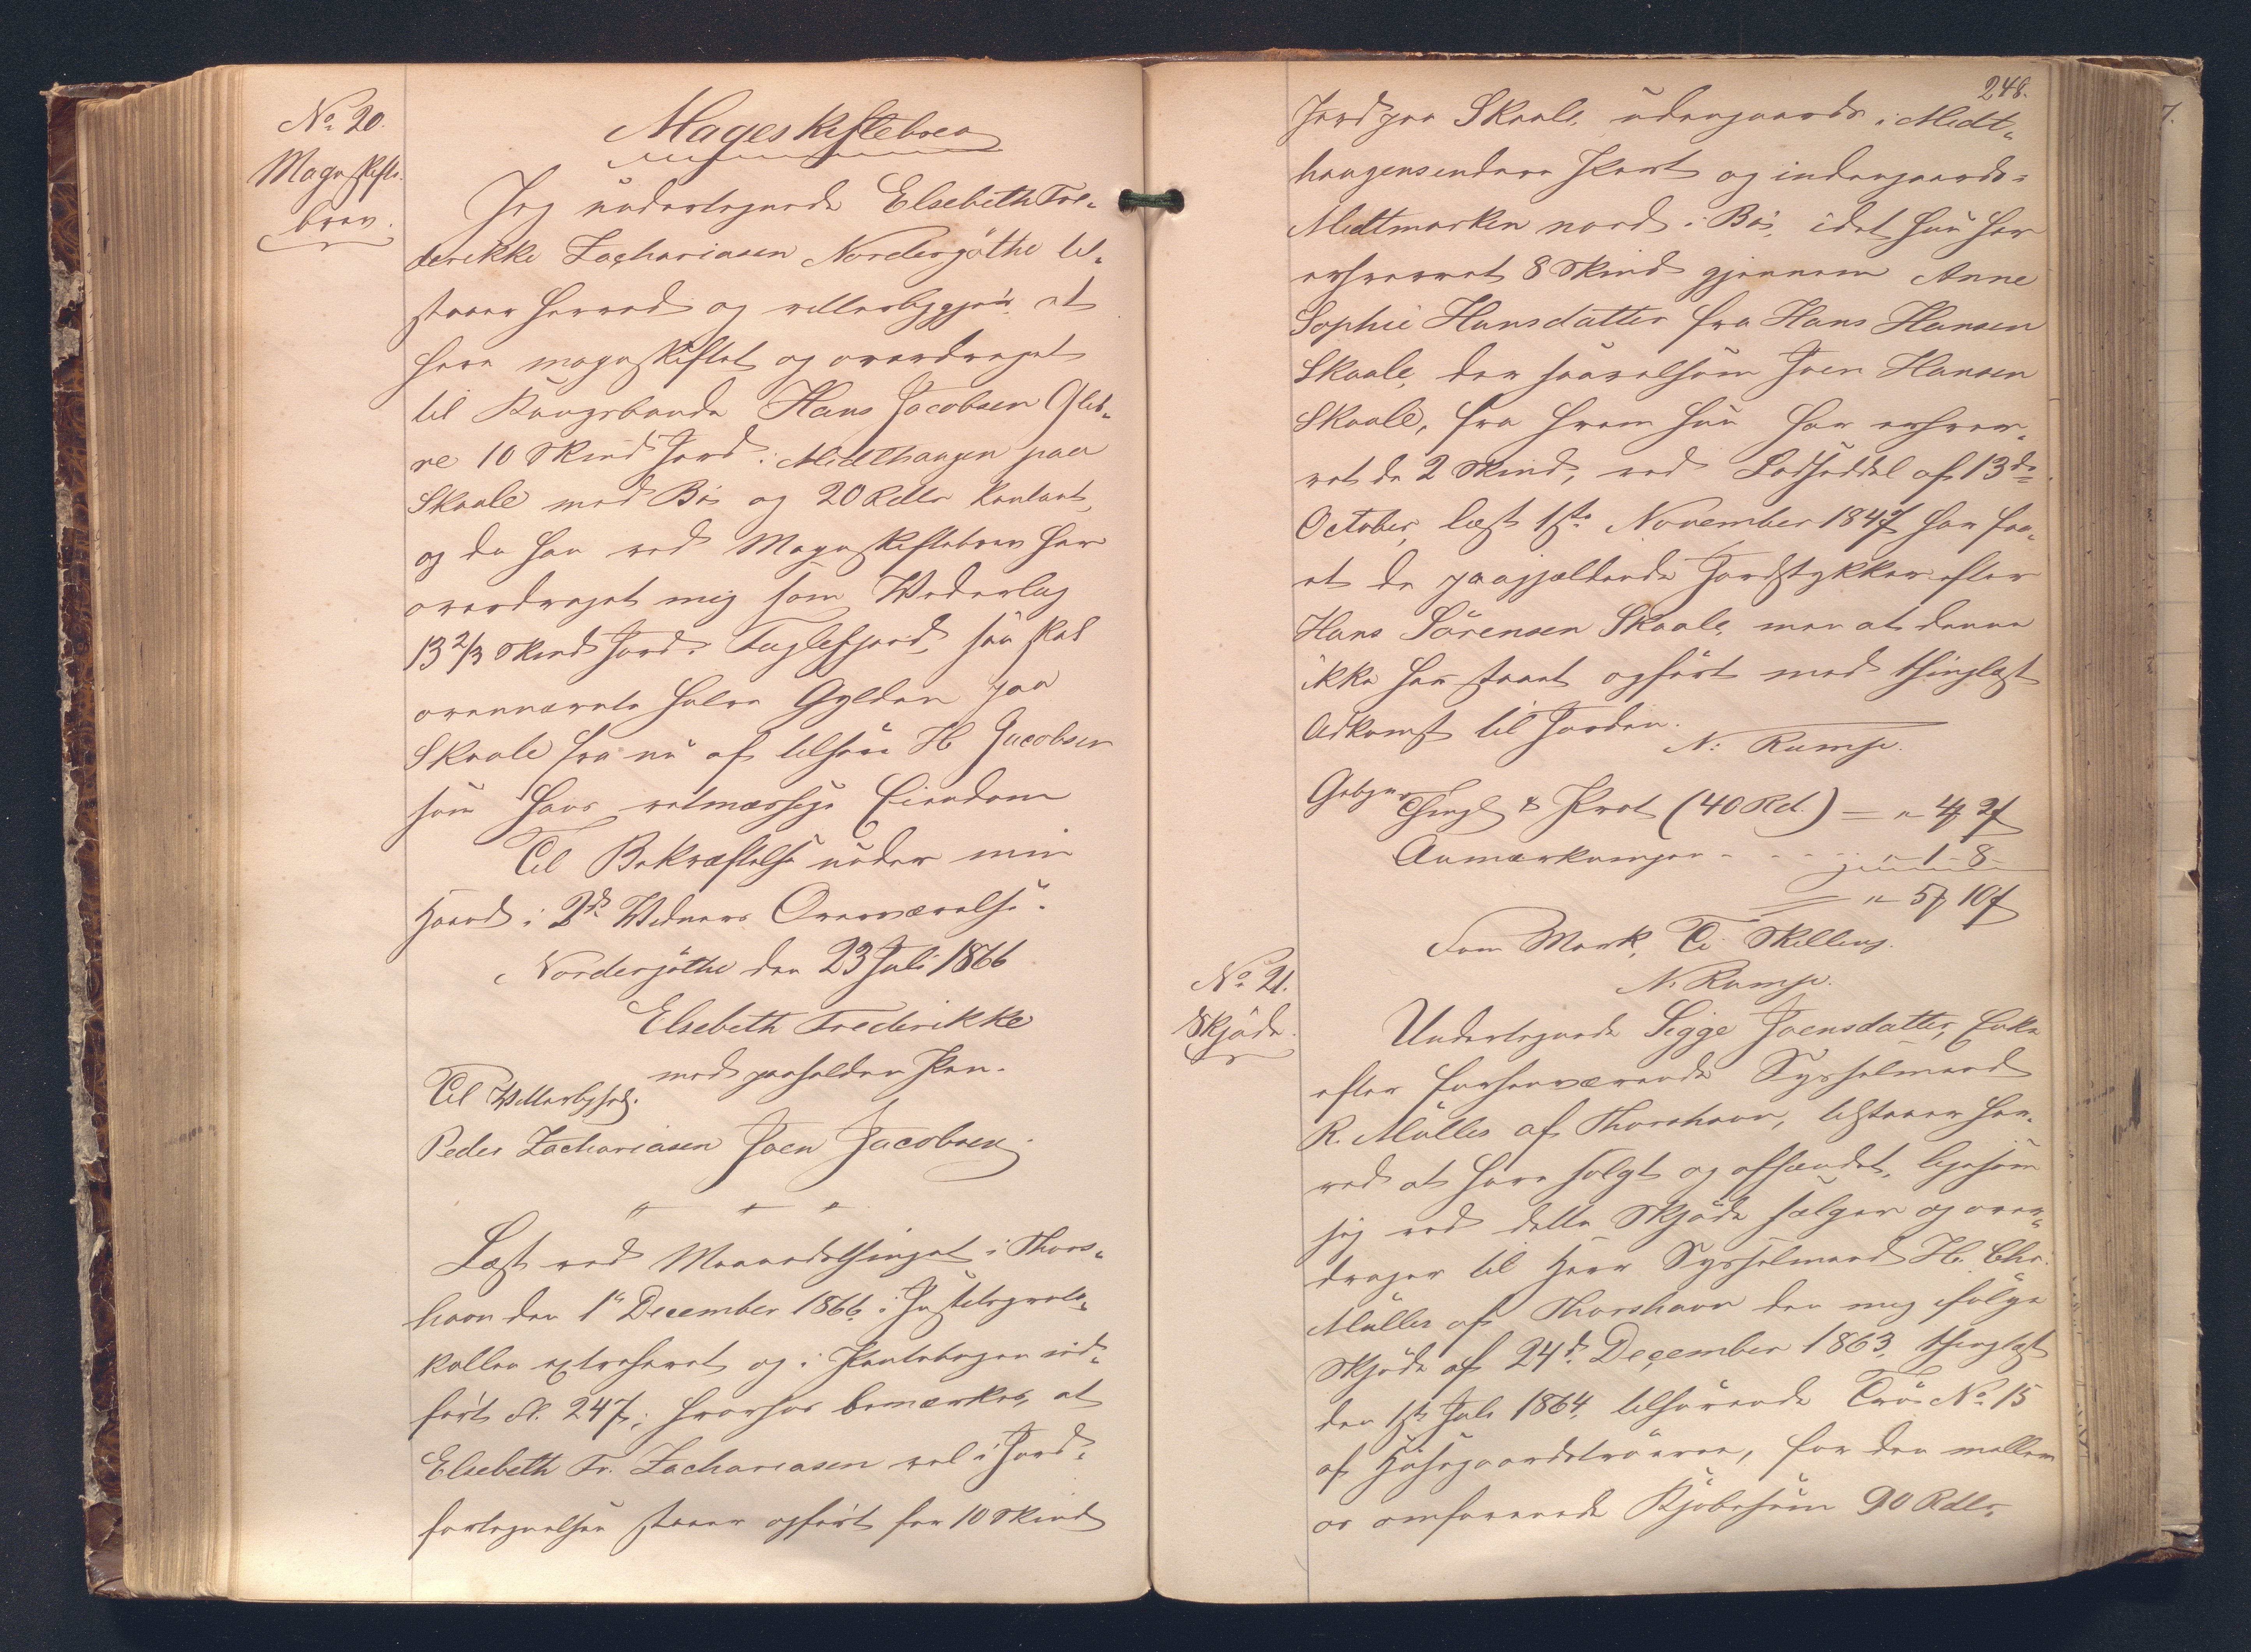 No 20.
Mageskifte-
brev.
Mageskiftebrev
Jeg undertegnede Elsebeth Fre-
derikke Zachariasen Nordergöthe til-
staaer herved og vitterliggjør at
have mageskiftet og overdraget
til Kongsbonde Hans Jacobsen Glib-
re 10 Skind Jord i Midthaugen paa
Skaale med Bø og 20 Rdlr kontant,
og da han ved Mageskiftebrev har
overdraget mig som Vederlag
13 2/3 Skind Jord i Fuglefjord, saa skal
ovennævnte halve Gylden paa
Skaale fra nu af tilhøre H Jacobsen
som hans retmæssige Eiendom
Til Bekræftelse under min
Haand i 2de Vidners Overværelse.
Nordergöthe den 23 Juli 1866
Elsebeth Frederikke
med paaholden Pen.
Til Vitterlighed.
Peder Zachariasen Joen Jacobsen.
Læst ved Maanedsthinget i Thors-
havn den 1ste December 1866, i Justitsproto-
kollen extraheret og i Pantebogen ind-
ført Fl. 247; hvorhos bemærkes, at
Elsebeth Fr. Zachariasen vel i Jord-
fortegnelsen staaer opført for 10 Skind
248.
Jord paa Skaale, udengaards i Midt-
haugensendere Part og indengaards-
Midtmarken nord i Bø, idet hun har
erhvervet 8 Skind gjennem Anne
Sophie Hansdatter fra Hans Hansen
Skaale, der saavelsom Joen Hansen
Skaale, fra hvem hun har erhver-
vet de 2 Skind, ved Lodseddel af 13de
October, læst 1ste November 1847 har faa-
et de paagjældende Jordstykker efter
Hans Sörensen Skaale, men at denne
ikke har staaet opført med thinglæst
Adkomst til Jorden.
N. Rump.
Gebyr
Thingl & Prot (40 Rd.) = " 4 ƒ 2 ƒ
Anmærkningen - - - " 1 - 8 -
" 5 ƒ 10 ƒ
Fem Mark, Ti Skilling.
N. Rump.
No 21.
Skjöde.
Undertegnede Sigge Joensdatter, Enke
efter forhenværende Sysselmand
R. Müller af Thorshavn, tilstaaer her-
ved at have solgt og afhændet, ligesom
jeg ved dette Skjöde sælger og over-
drager til Herr Sysselmand H. Chr.
Müller af Thorshavn den mig ifølge
Skjöde af 24de December 1863, thinglæst
den 1ste Juli 1864, tilhørende Trö No 15
af Husegaardströerne, for den mellem
os omforenede Kjöbesum 90 Rdlr,